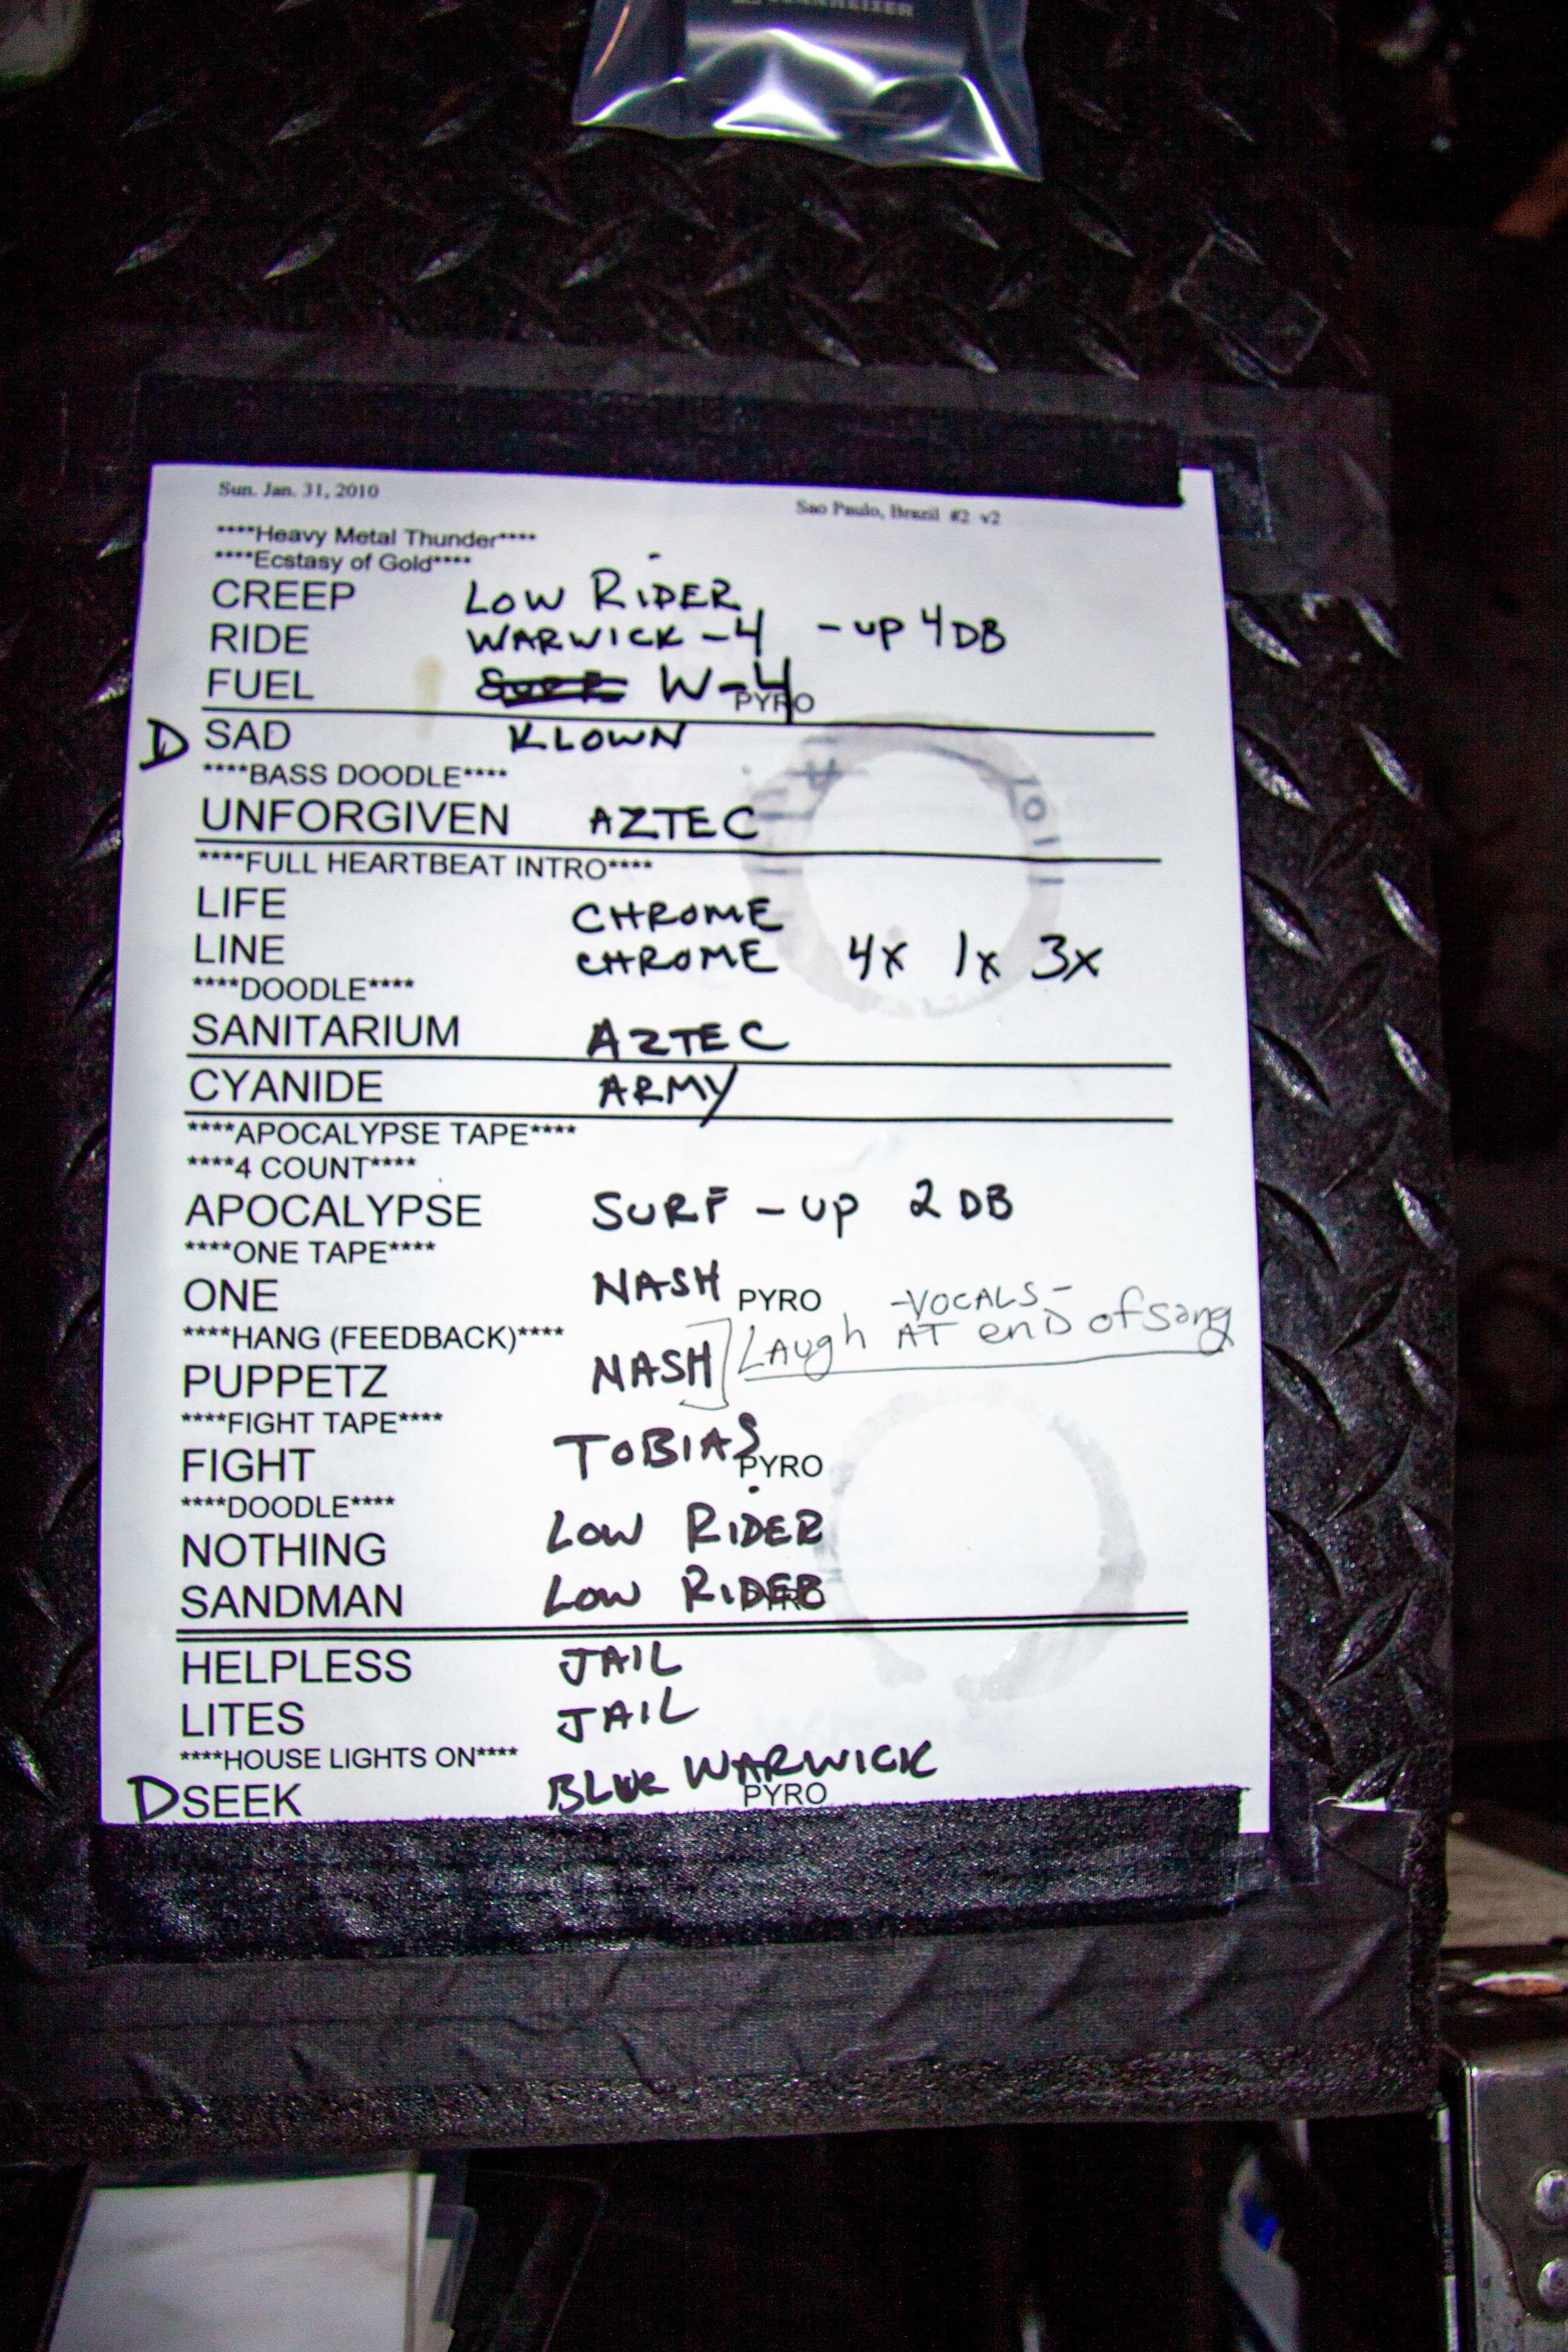 SENNHEISER
Sun. Jan. 31, 2010 Sao Paulo, Brazil #2 v2
****Heavy Metal Thunder****
****Ecstasy of Gold****
CREEP LOW RIDER
RIDE WARWICK-4 -UP 4DB
FUEL W-4 PYRO
D SAD KLOWN
****BASS DOODLE****
UNFORGIVEN AZTEC
****FULL HEARTBEAT INTRO****
LIFE CHROME
LINE CHROME 4x 1x 3x
****DOODLE****
SANITARIUM AZTEC
CYANIDE ARMY
****APOCALYPSE TAPE****
****4 COUNT****
APOCALYPSE SURF - UP 2DB
****ONE TAPE****
ONE NASH PYRO -VOCALS-
****HANG (FEEDBACK)**** Laugh AT enD of song
PUPPETZ NASH
****FIGHT TAPE****
FIGHT TOBIAS PYRO
****DOODLE****
NOTHING LOW RIDER
SANDMAN LOW RIDER PYRO
HELPLESS JAIL
LITES JAIL
****HOUSE LIGHTS ON****
D SEEK BLUE WARWICK PYRO